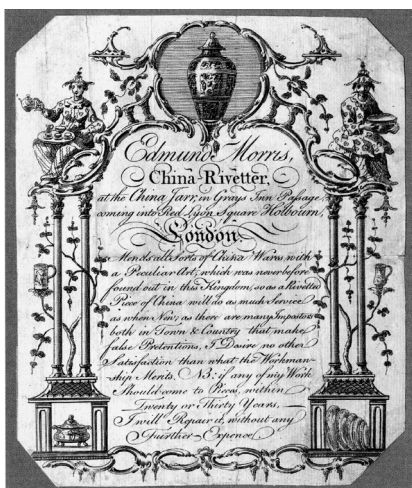 Edmund Morris,
China-Rivetter,
at the China Jarr, in Grays Inn Passage
coming into Red Lyon Square Holbourn,
London.
Mends all Sorts of China Wares, with
a Peculiar Art, which was never before
found out in this Kingdom, so as a Rivetted
Piece of China will do as much Service
as when New; as there are many Impostors
both in Town & Country that make
false Pretentions, I Desire no other
Satisfaction than what the Workman-
ship Merits. NB: if any of my Work
Should come to Pieces, within
Twenty or Thirty Years,
I will Repair it, without any
Further Expence